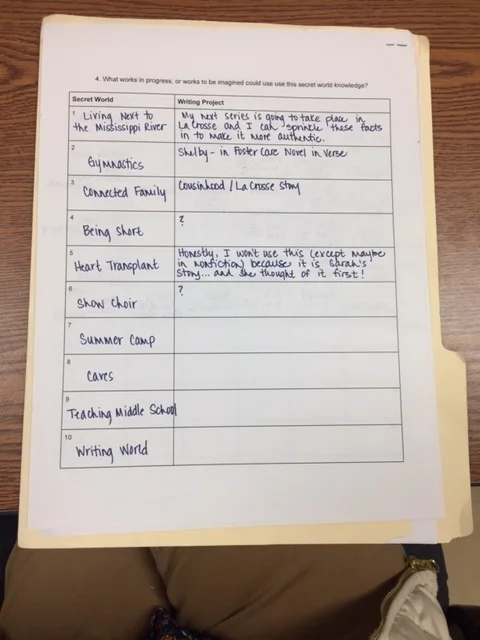 4. What works in progress, or works to be imagined could use use this secret world knowledge?
Secret World
Writing Project
1 Living Next to
the Mississippi River
My next series is going to take place in
La Crosse and I can sprinkle these facts
in to make it more authentic.
2
Gymnastics
Shelby - in Foster Care Novel in Verse
3
Connected Family
Cousinhood / La Crosse Story
4
Being Short
?
5
Heart Transplant
Honestly, I won't use this (except maybe
in nonfiction) because it is Sarah's
story... and she thought of it first!
6
Show Choir
?
7
Summer Camp
8
Caves
9
Teaching Middle School
10
Writing World